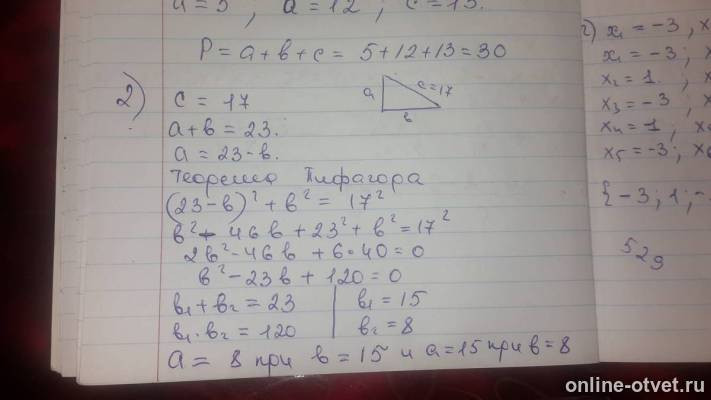 a = 5, a = 12, c = 13.
P = a + b + c = 5 + 12 + 13 = 30
2)
c = 17
a + b = 23.
a = 23 - b.
a
c = 17
b
Теорема Пифагора
(23 - b)² + b² = 17²
b² - 46b + 23² + b² = 17²
2b² - 46b + 6·40 = 0
b² - 23b + 120 = 0
b₁ + b₂ = 23
b₁ · b₂ = 120
b₁ = 15
b₂ = 8
a = 8 при b = 15 и a = 15 при b = 8
x₁ = -3, x
x₁ = -3; x
x₂ = 1
x₃ = -3, x
x₄ = 1, x
x₅ = -3; x₆
{-3; 1; -
529
online-otvet.ru